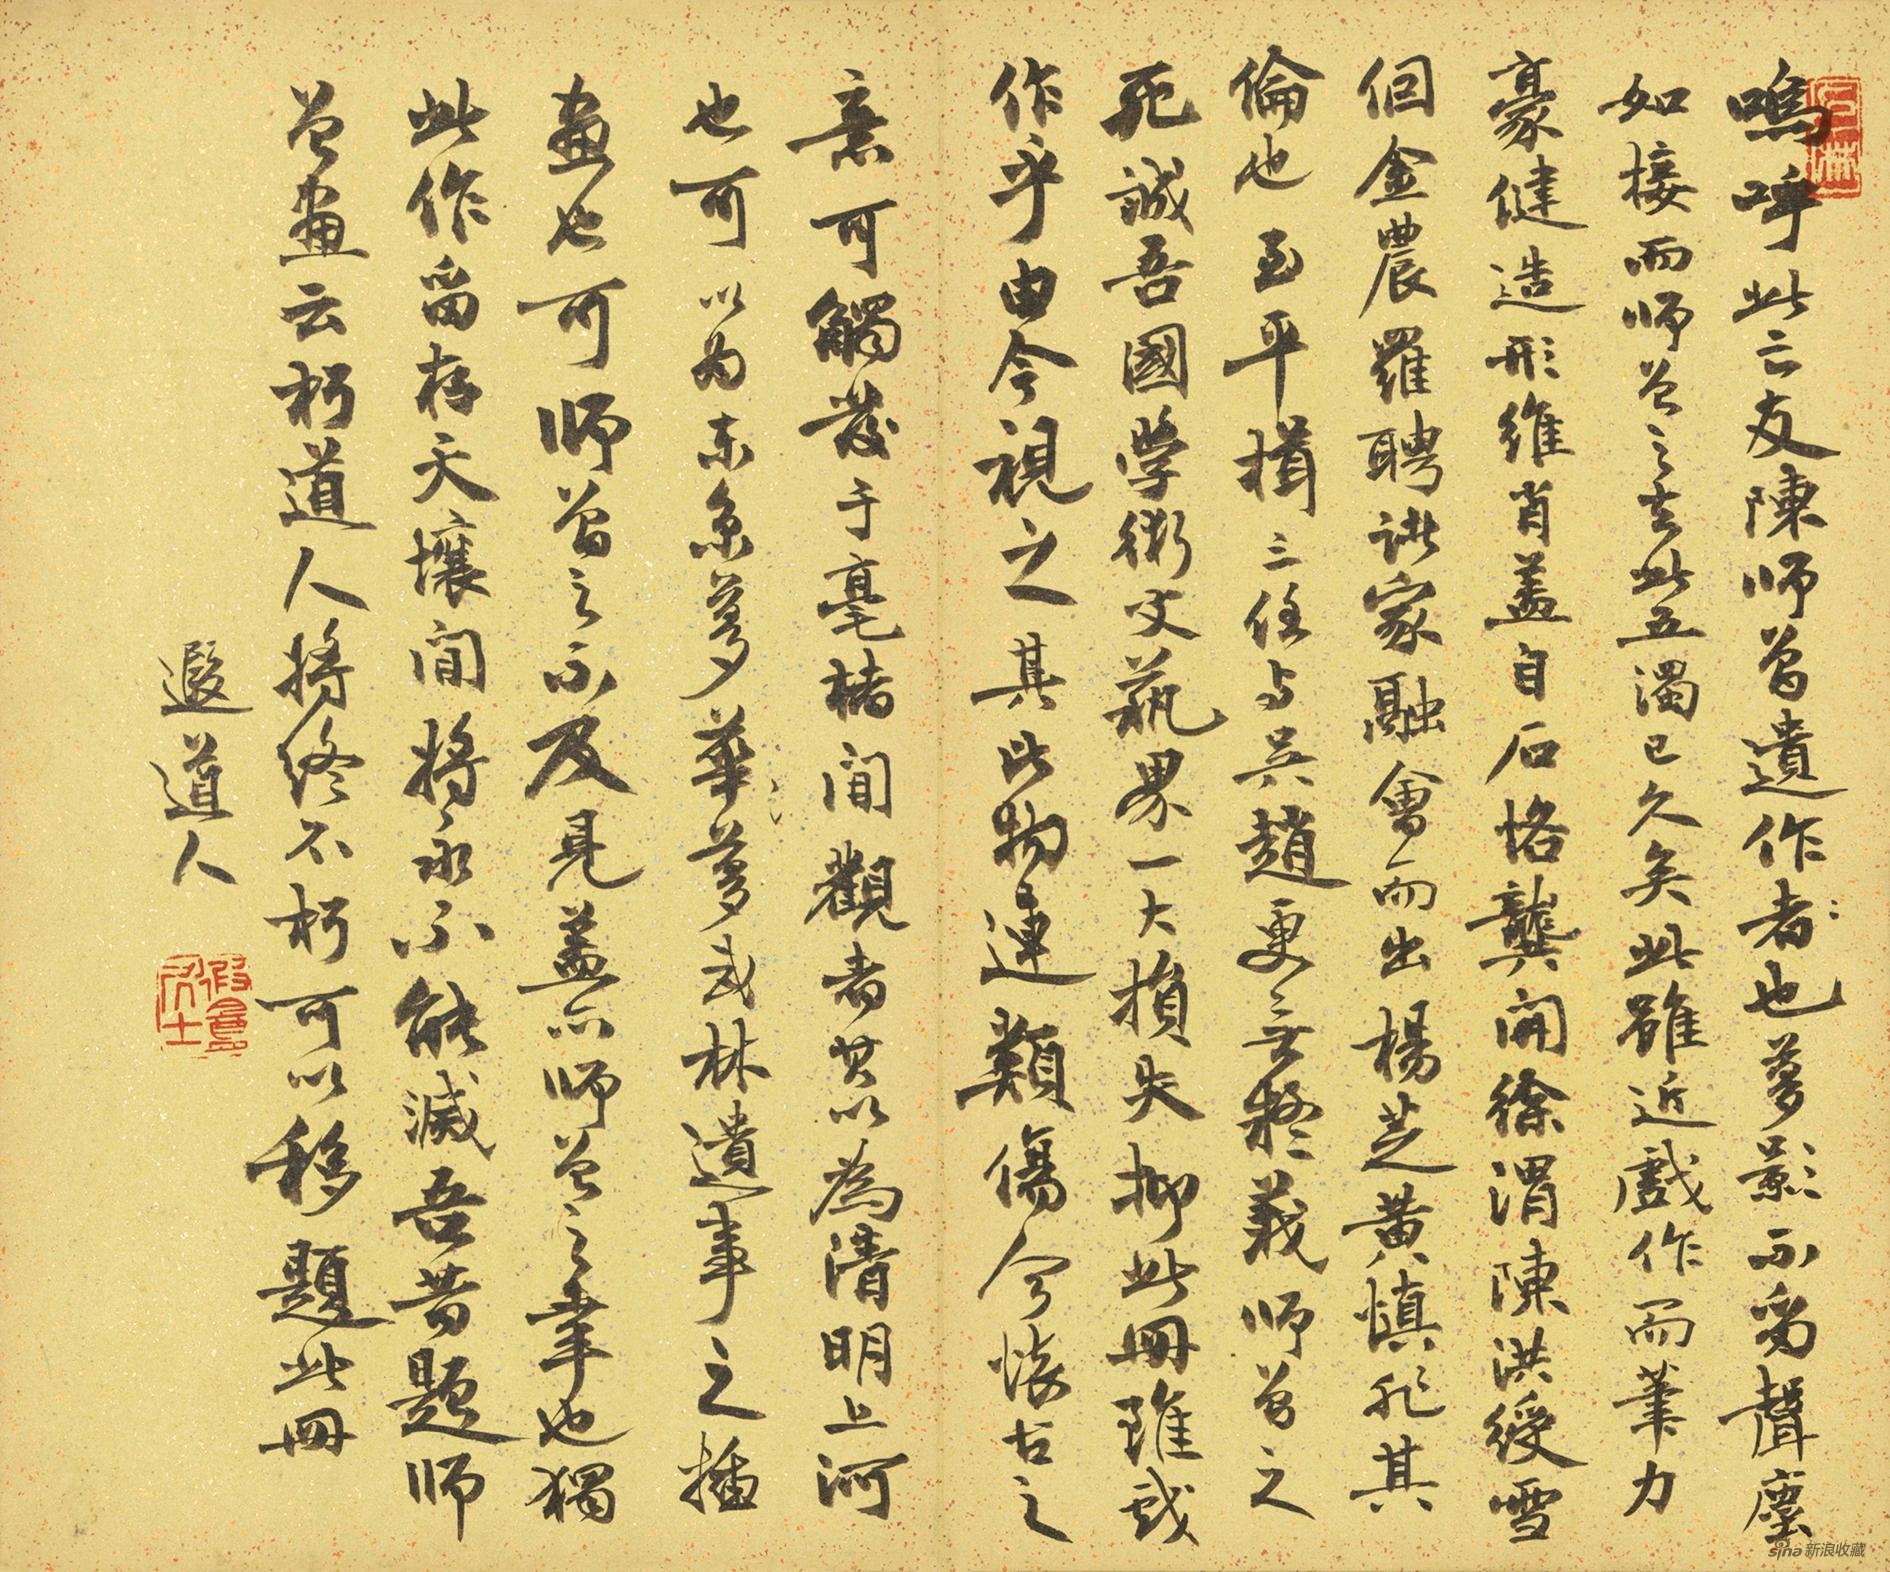 嗚呼此亡友陳師曾遺作者也夢影不留聲塵
如接而師曾之去此五濁已久矣此雖近戲作而筆力
豪健造形維肖蓋自石恪龔開徐渭陳洪綬雪
個金農羅聘諸家融會而出楊芝黃慎非其
倫也至平揖三任与吳趙更無疑義師曾之
死誠吾國學術文藝界一大損失抑此冊雖戲
作乎由今視之其比物連類傷今懷古之
意可觸發于毫楮間觀者苟以為清明上河
也可以为东京夢華夢或林遺事之插
畫也可師曾之不及見蓋亦師曾之幸也獨
此作留存天壤間將永不能滅吾昔題師
曾畫云朽道人將終不朽可以移題此冊
遐道人
遐盦居士
sina 新浪收藏